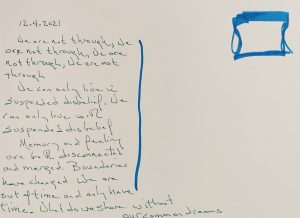 12.4.2021
We are not through, We
are not through, We are
not through, We are not
through
We can only live in
suspended disbelief, We
can only live with
suspended disbelief
Memory and feeling
are both disconnected
and merged. Boundaries
have changed. We are
out of time and only have
time. What do we share without
our common dreams